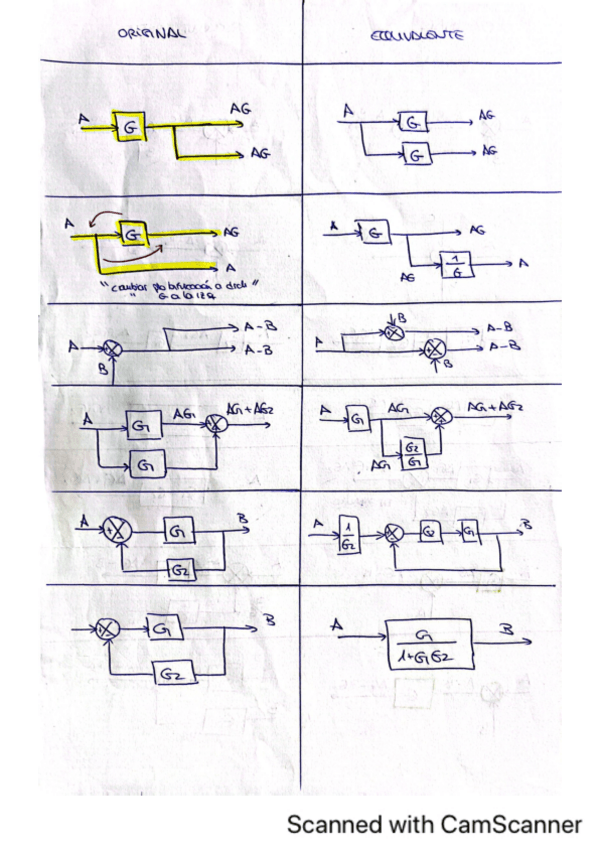 ORIGINAL
EQUIVALENTE
A
G
AG
AG
A
G
AG
G
AG
A
G
AG
A
"cambiar pto bifurcación a dcha"
" G a la izq
A
G
AG
AG
1
G
A
A
B
A-B
A-B
A
B
A-B
A-B
B
A
G1
AG1
AG1+AG2
G1
A
G1
AG1
AG1+AG2
AG1
G2
G1
A
G1
B
G2
A
1
G2
G2
G1
B
G1
B
G2
A
G1
1+G1G2
B
Scanned with CamScanner